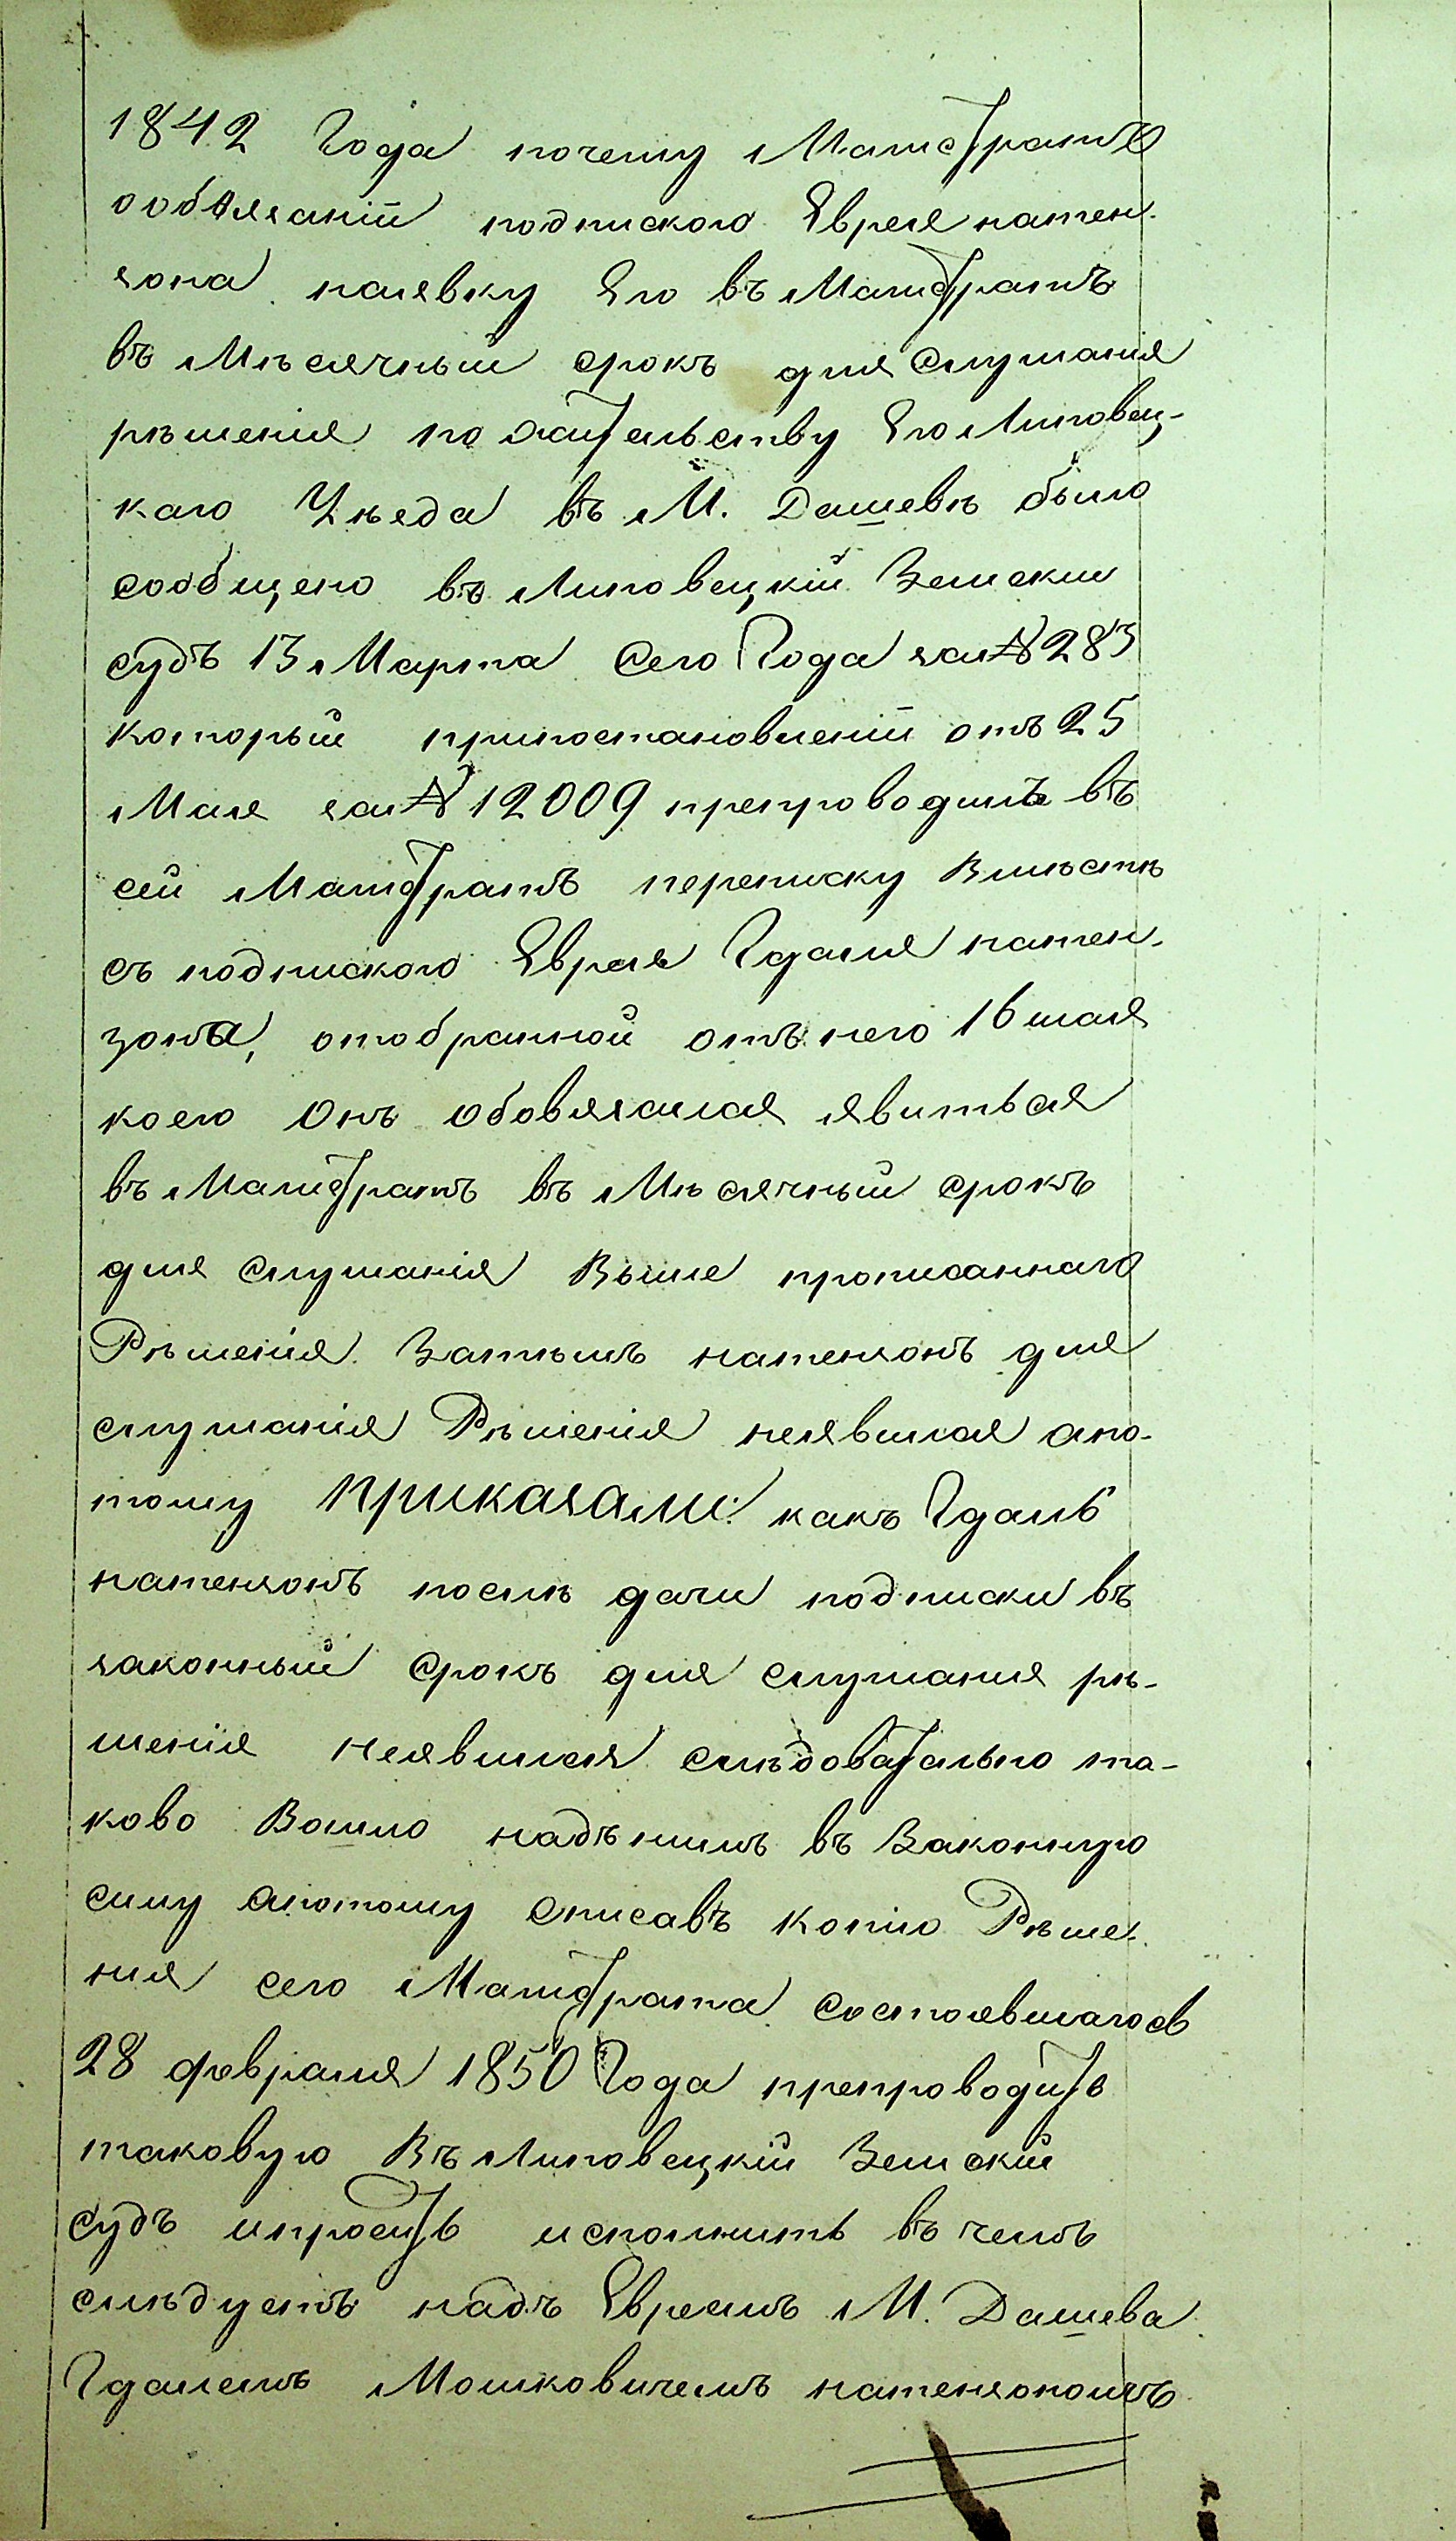 1842 Года почему Магистратъ
ообвязаніи подпискою Еврея натен-
зона наявку Его въ Магистратъ
въ Мѣсячный срокъ для Слушанія
рѣшенія по жительству Его Липовец-
каго Уѣзда въ М. Дашевѣ было
сообщено въ Липовецкій Земскій
судъ 13 Марта Сего Года за№ 283
который припостановленіи отъ 25
Мая за№ 12009 препроводилъ въ
сей Магистратъ переписку Вмѣстѣ
съ подпискою Еврея Гдаля натен-
зона, отобранной отъ него 16 мая
коею Онъ обовязался явиться
въ Магистратъ въ Мѣсячный срокъ
для Слушанія Выше прописаннаго
Рѣшенія. Затѣмъ натензонъ для
слушанія Рѣшенія неявился апо-
тому Приказали: какъ Гдаль
натензонъ послѣ дачи подписки въ
законный срокъ для слушания рѣ-
шенія неявился слѣдовательно та-
ково Вошло надъ нимъ въ Законную
силу апотому списавъ копію Рѣше-
ния сего Магистрата состоявшагося
28 февраля 1850 Года препроводить
таковую Въ Липовецкій Земскій
судъ ипросить исполнить въ чемъ
слѣдуетъ надъ Евреемъ М. Дашева
Гдалемъ Мошковичемъ натензономъ